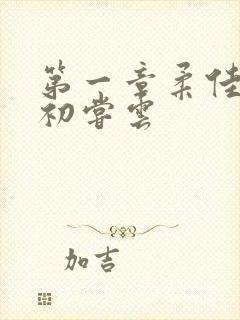 第一章柔佳
初尝云
加吉